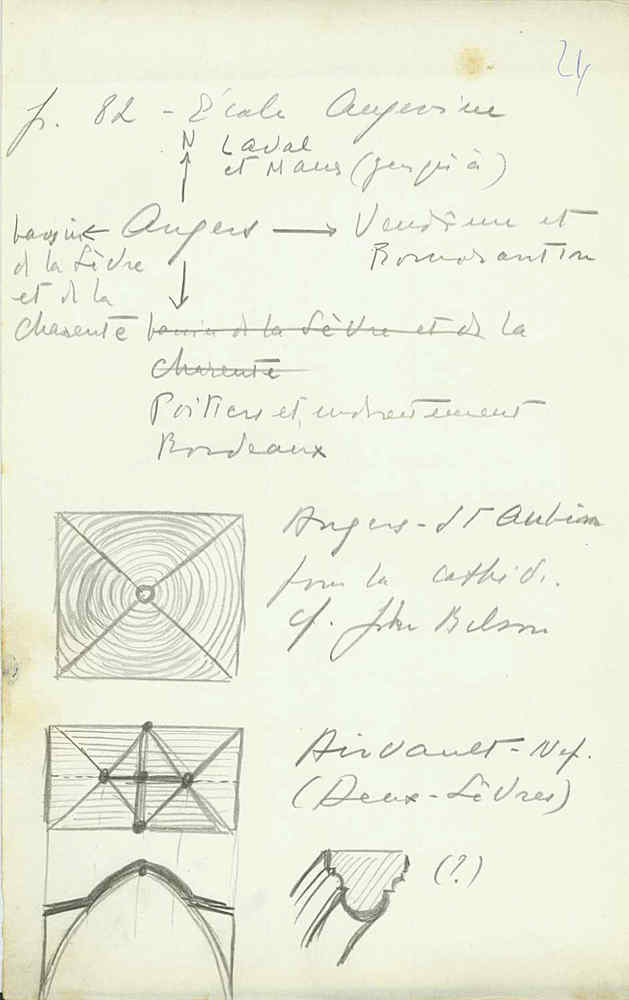 24
p. 82 - École Angevine
N Laval
et Mans (jusqu'à)
bassin ← Angers → Vendôme et
de la Sèvre Romorantin
et de la
Charente bassin de la Sèvre et de la
Charente
Poitiers et, indirectement
Bordeaux
Angers - St Aubin
pour la cathéd.
cf. John Bilson
Airvault - Nef.
(Deux-Sèvres)
(?)